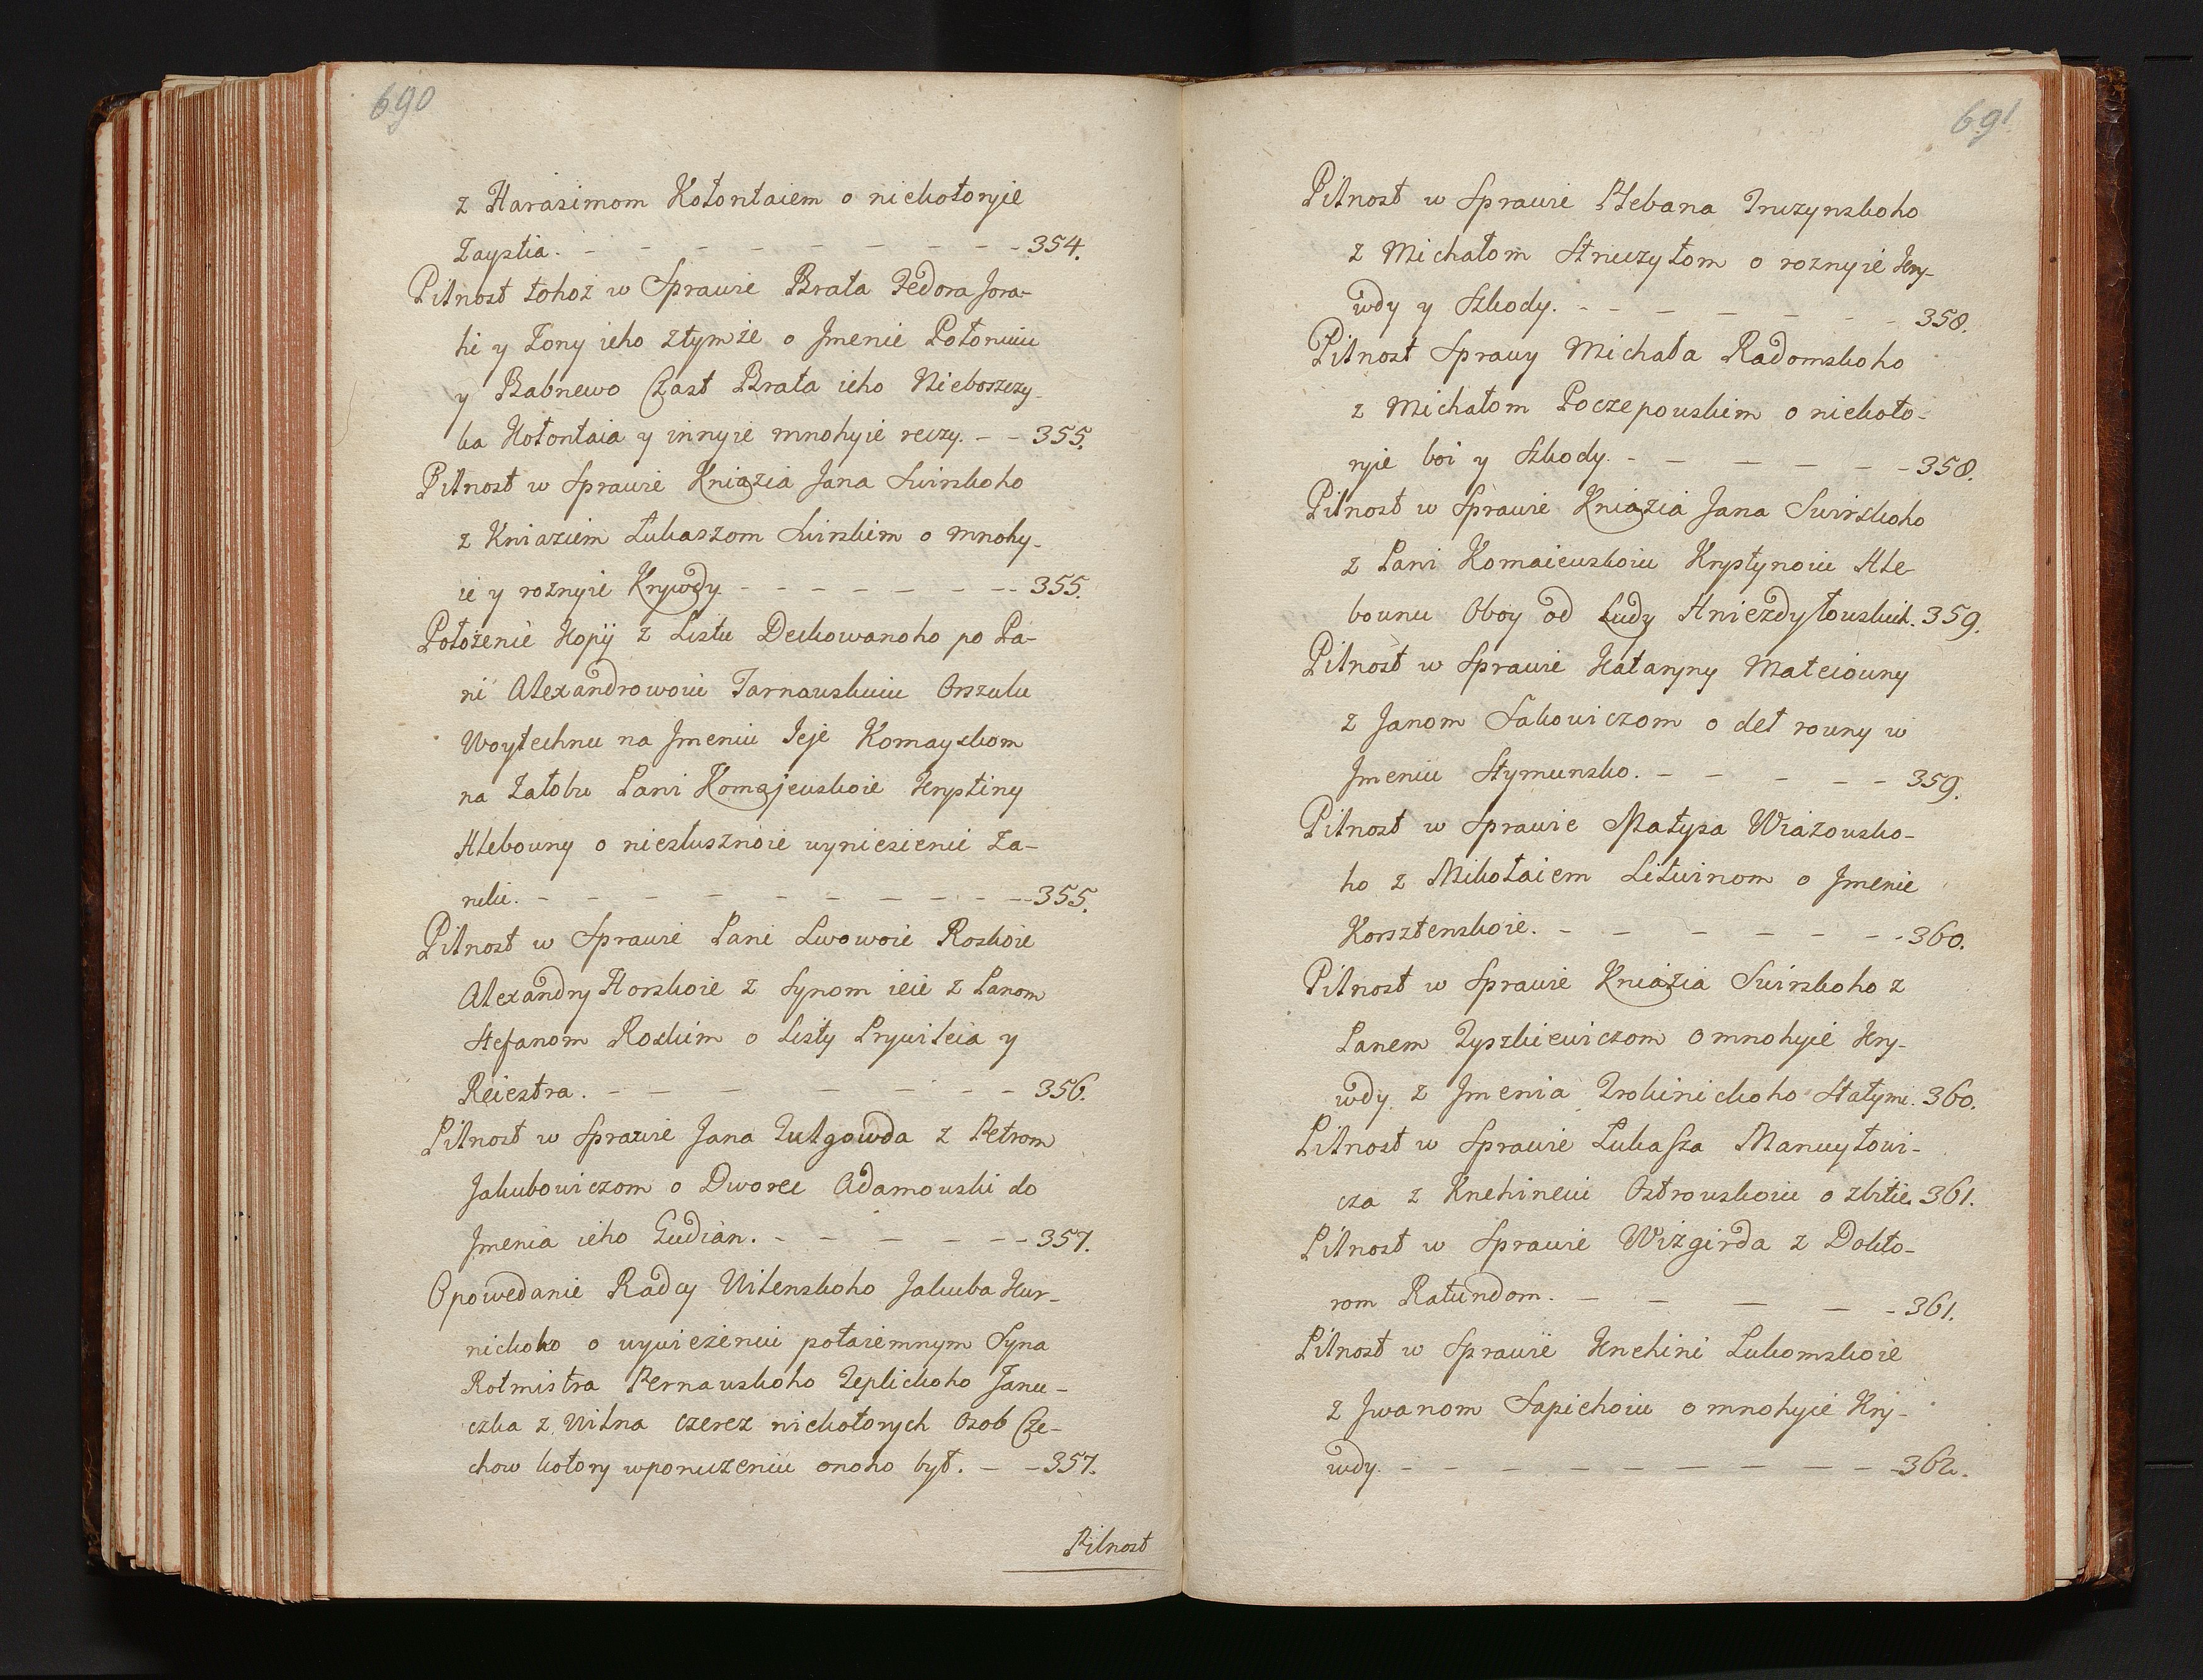 690
z Harasimom Kołontaiem o niekotoryie
Zaystia. - - - - - - - - - 354.
Pilnost tohoż w Sprawie Brata Fedora Jora-
hi y Zony ieho ztymże o Jmenie Połoniu
y Babnewo Czast Brata ieho Nieboszczy-
ka Kołontaia y innyie mnohyie reczy. - - 355.
Pilnost w Sprawie Kniazia Jana Swirskoho
z Kniaziem Łukaszom Swirskim o mnohy-
ie y roznyie Krywdy - - - - - - - - 355.
Położenie Kopij z Listu Deckowanoho po Pa-
ni Alexandrowoiu Tarnowskuiu Orszulu
Woytechnu na Jmeniu Jeje Komayskom
na Załobu Pani Komajewskoie Krystiny
Hlebowny o niesłusznoie wyniesienie Za-
ruki. - - - - - - - - - - 355.
Pilnost w Sprawie Pani Lwowoie Roskoie
Alexandry Horskoie z Synom ieie z Panom
Stefanom Roskim o Listy Prywileia y
Reiestra. - - - - - - - 356.
Pilnost w Sprawie Jana Dulgowda z Petrom
Jakubowiczom o Dworec Adamowski do
Jmenia ieho Gudian. - - - - - - 357.
Opowedanie Radcy Wilenskoho Jakuba Kur-
nickoho o wywiezeniu potaiemnym Syna
Rotmistra Pernawskoho Teplickoho Janu-
czka z Wilna czerez niekotorych Osob Cze-
chow kotory wporuczeniu onoho był. - - 357.
Pilnost
691
Pilnost w Sprawie Plebana Druzynskoho
z Michałom Hruzyłom o roznyie Kry-
wdy y Szkody. - - - - - - - 358.
Pilnost Sprawy Michała Radomskoho
z Michałom Poczepowskim o niekoto-
ryie boi y Szkody. - - - - - - 358.
Pilnost w Sprawie Kniazia Jana Swirskoho
z Pani Komaiewskoiu Krystynoiu Hle-
bownu Oboy od Ludy Hniezdyłowskich. 359.
Pilnost w Sprawie Kataryny Mateiowny
z Janom Sakowiczom o deł rowny w
Jmeniu Stymunsko. - - - - - 359.
Pilnost w Sprawie Matysa Wiażowsko-
ho z Mikołaiem Litwinom o Jmenie
Korsztenskoie. - - - - - - - 360.
Pilnost w Sprawie Kniazia Swirskoho z
Panem Tyszkiewiczom o mnohyie Kry-
wdy z Jmenia Trokinickoho Stałymi. 360.
Pilnost w Sprawie Lukasza Manuyłowi-
cza z Knehineiu Ostrowskoiu o zbitie. 361.
Pilnost w Sprawie Wizgirda z Dokto-
rom Ratundom. - - - - - 361.
Pilnost w Sprawie Knehini Lukomskoie
z Jwanom Sapiehoiu o mnohyie Kry-
wdy. - - - - - - - - - - 362.